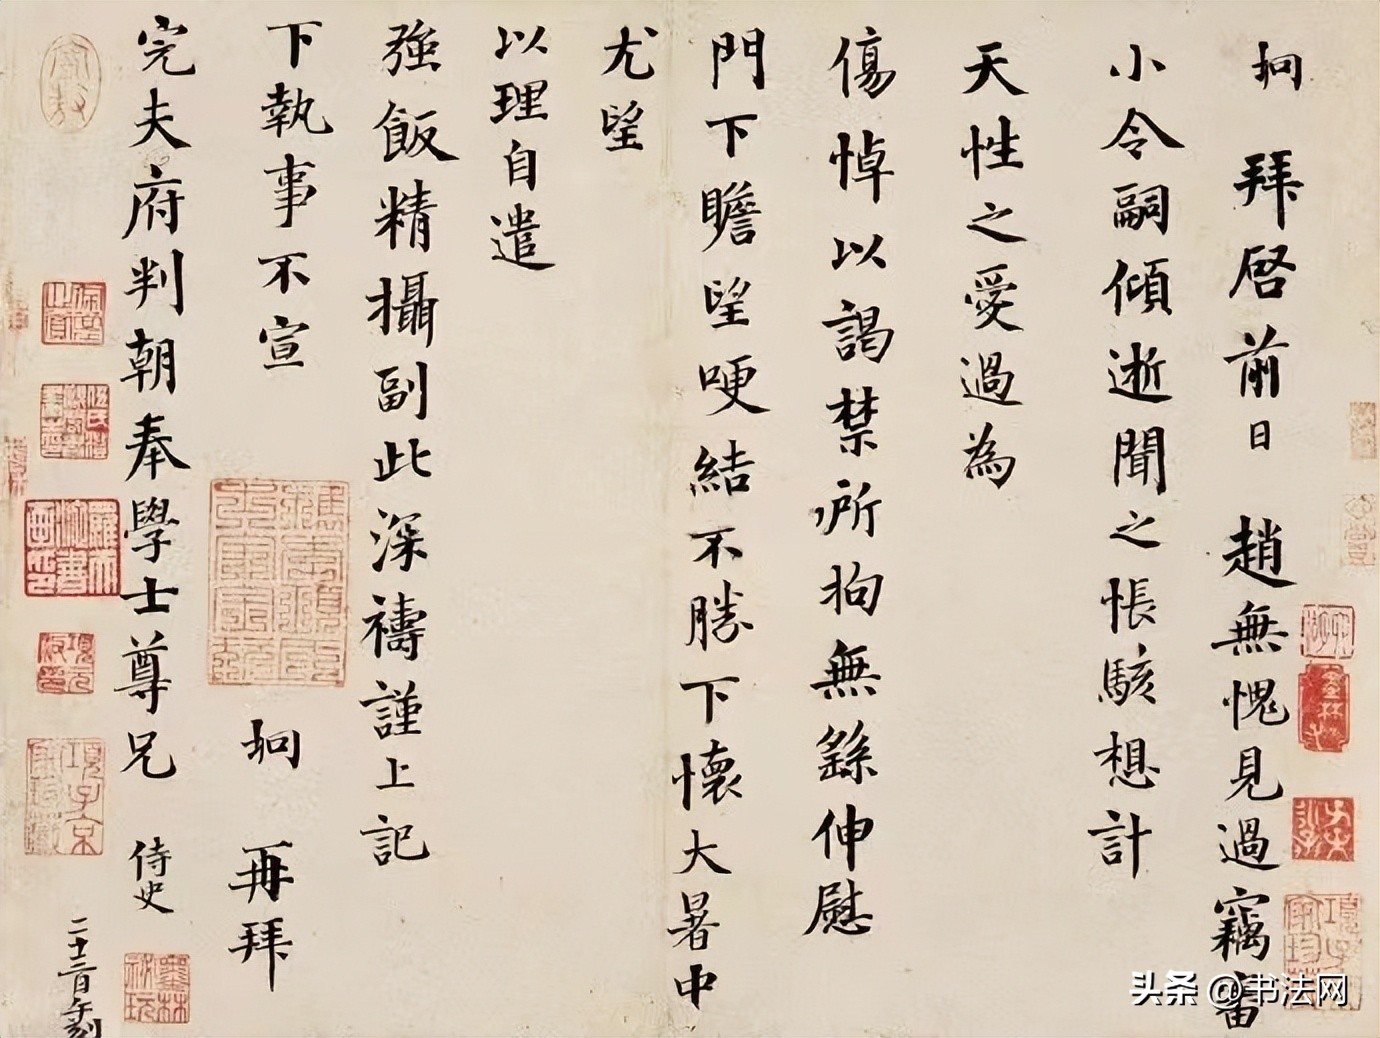 坰 拜啓前日 趙無愧見過竊審
小令嗣傾逝聞之悵駭想計
天性之愛過為
傷悼以謁禁所拘無繇伸慰
門下瞻望哽結不勝下懷大暑中
尤望
以理自遣
強飯精攝副此深禱謹上記
下執事不宣
坰 再拜
完夫府判朝奉學士尊兄 侍史
二十二日午刻
头条 @书法网